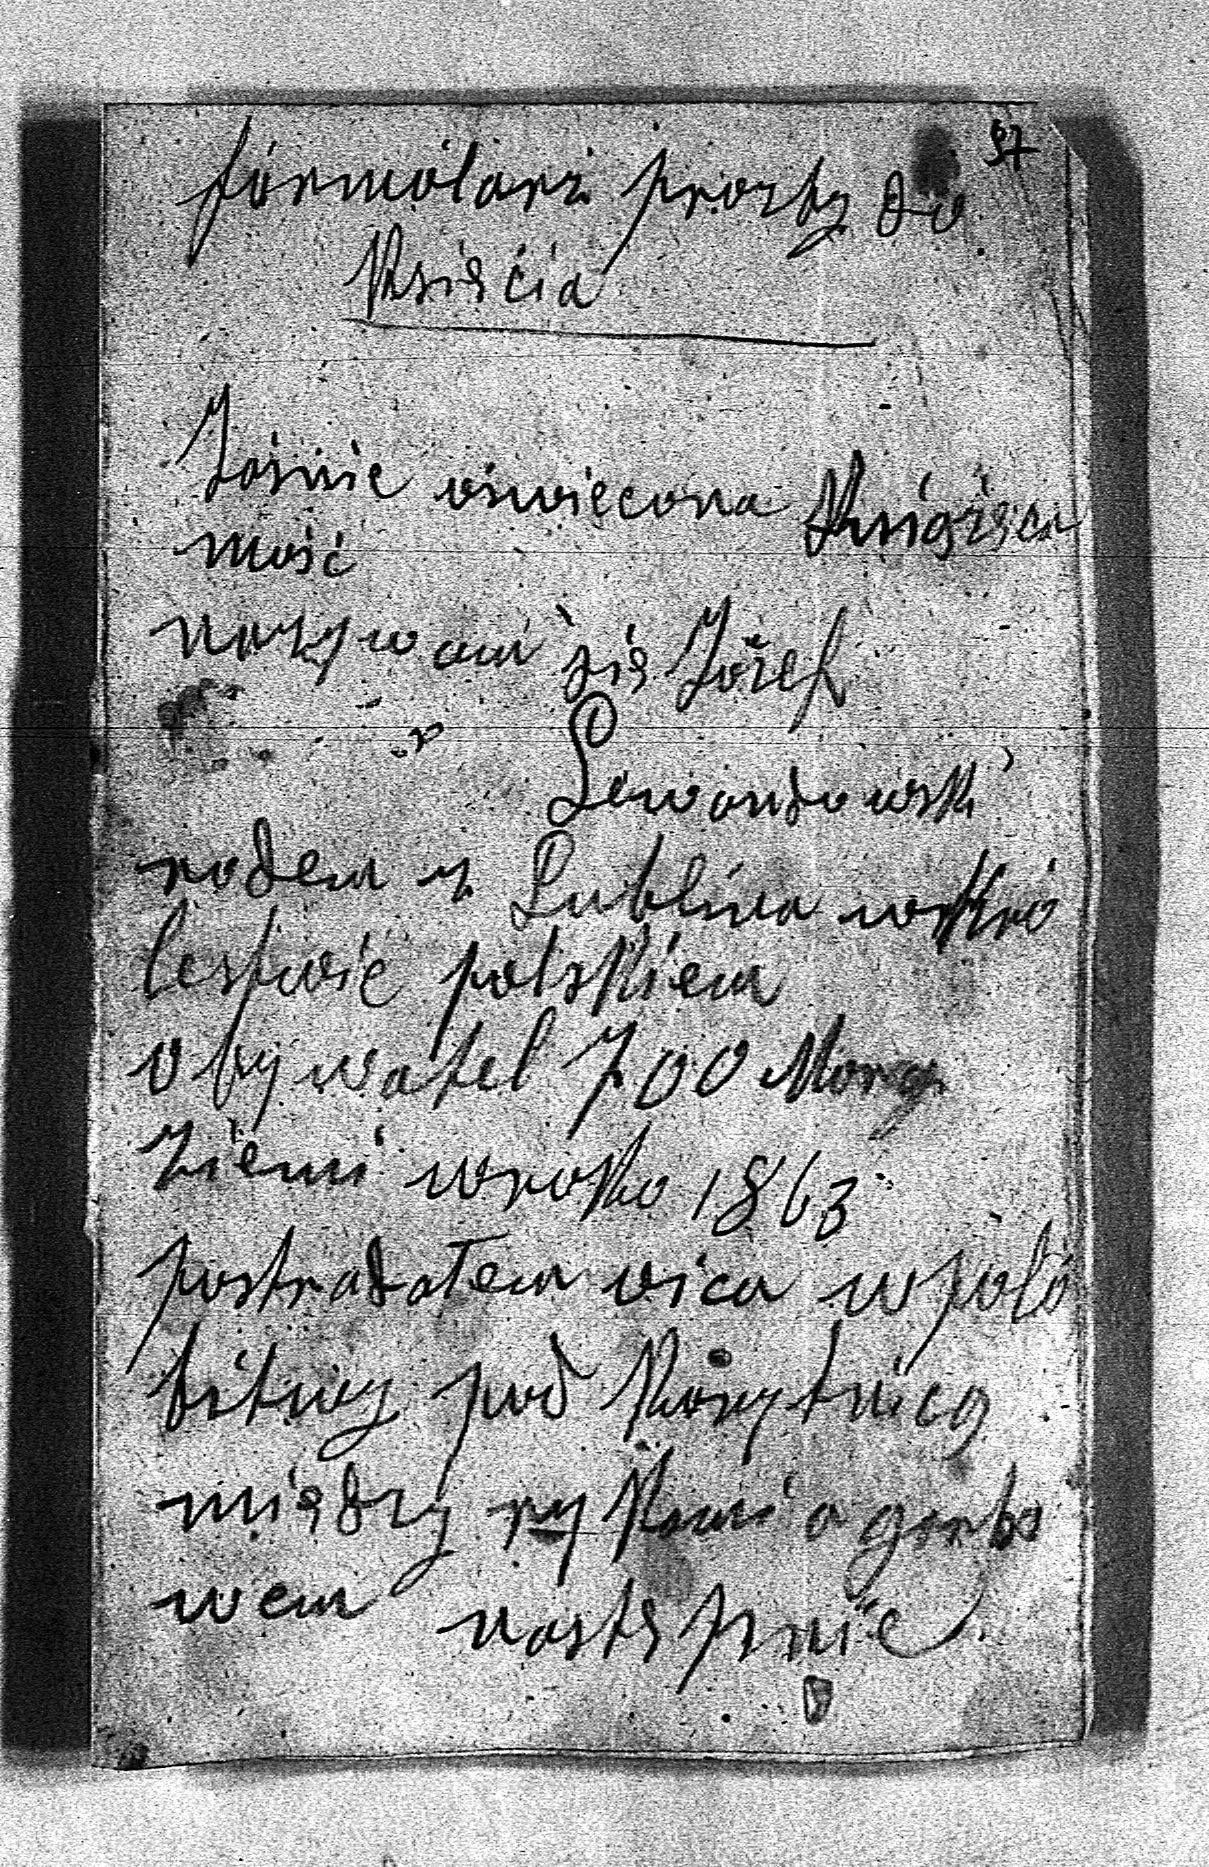 97
formólarz prozby do
Księcia
Jaśnie oświecona Książęca
mość
nazywam się Józef
Lewandowski
rodem z Lublina w Kró
lestwie polskiem
obywatel 700 Morgy
ziemi w roku 1863
postradałem oica w polu
bitwy pod Korytnicą
między rykami a grabo
wem nastempnie